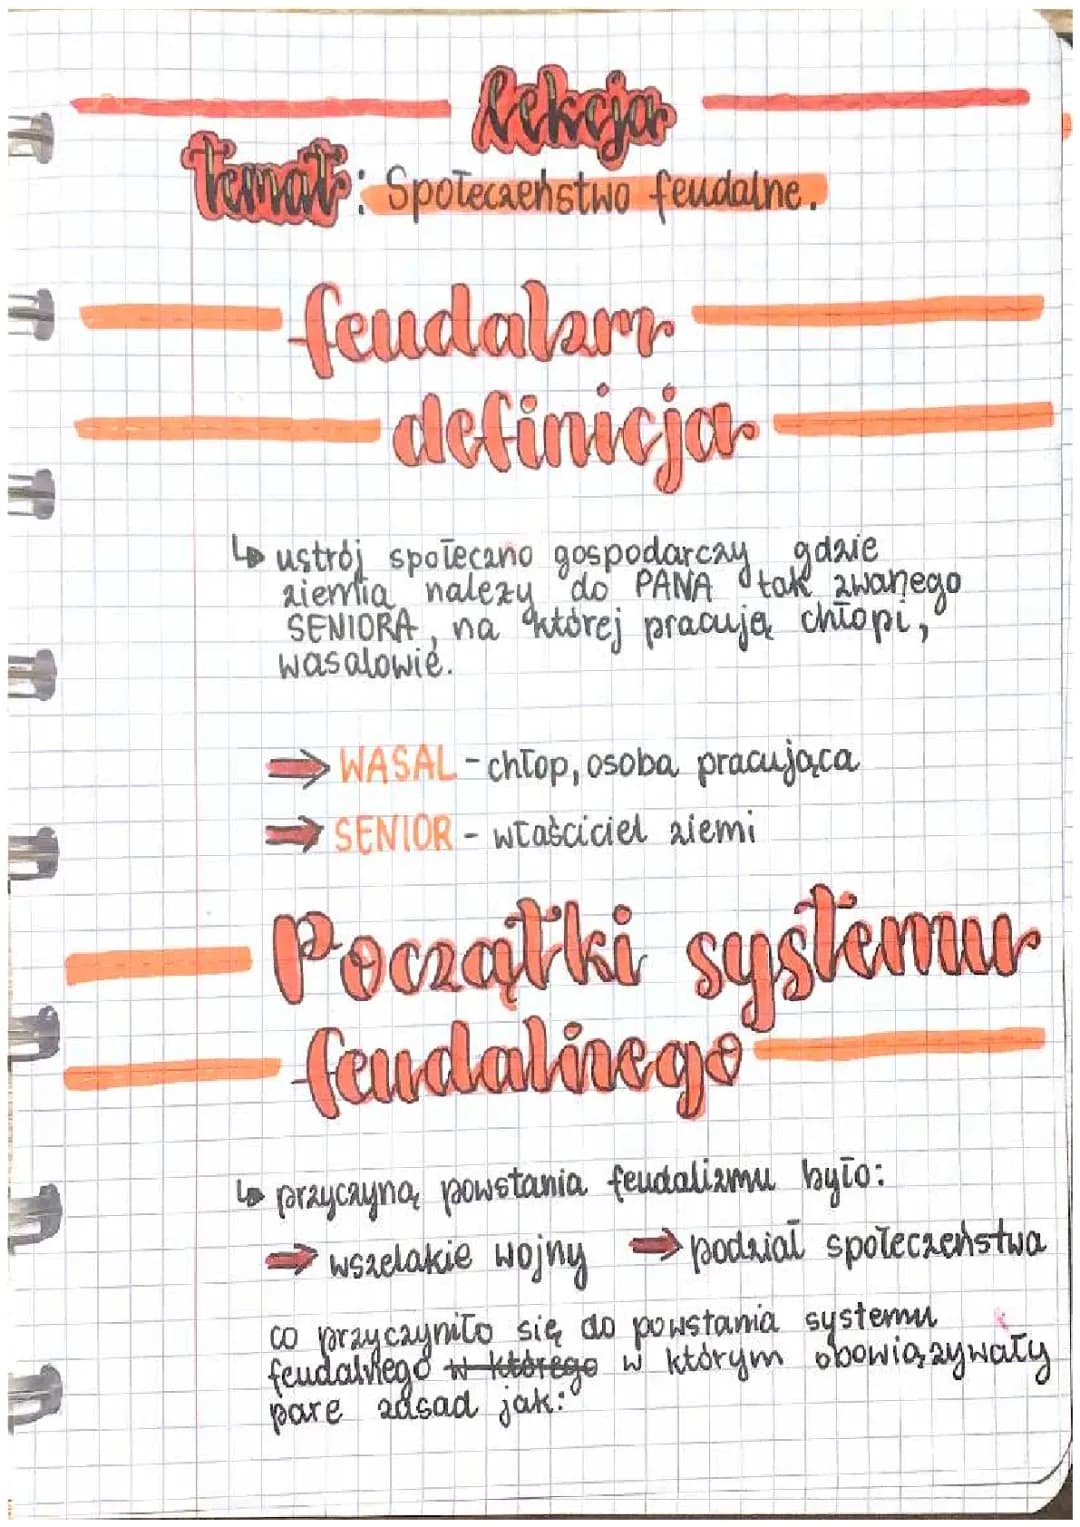 lekcja
temat: Społeczeństwo feudalne.
feudalizm
definicja
ustrój społeczno gospodarczy gdzie
ziemia należy do PANA tak zwanego
SENIORA, na której pracują chłopi,
wasalowie.
WASAL - chłop, osoba pracująca
SENIOR - właściciel ziemi
Początki systemu
feudalnego
przyczyną powstania feudalizmu było:
wszelakie wojny → podział społeczeństwa
co przyczyniło się do powstania systemu
feudalnego w którego w którym obowiązywały
pare zasad jak: